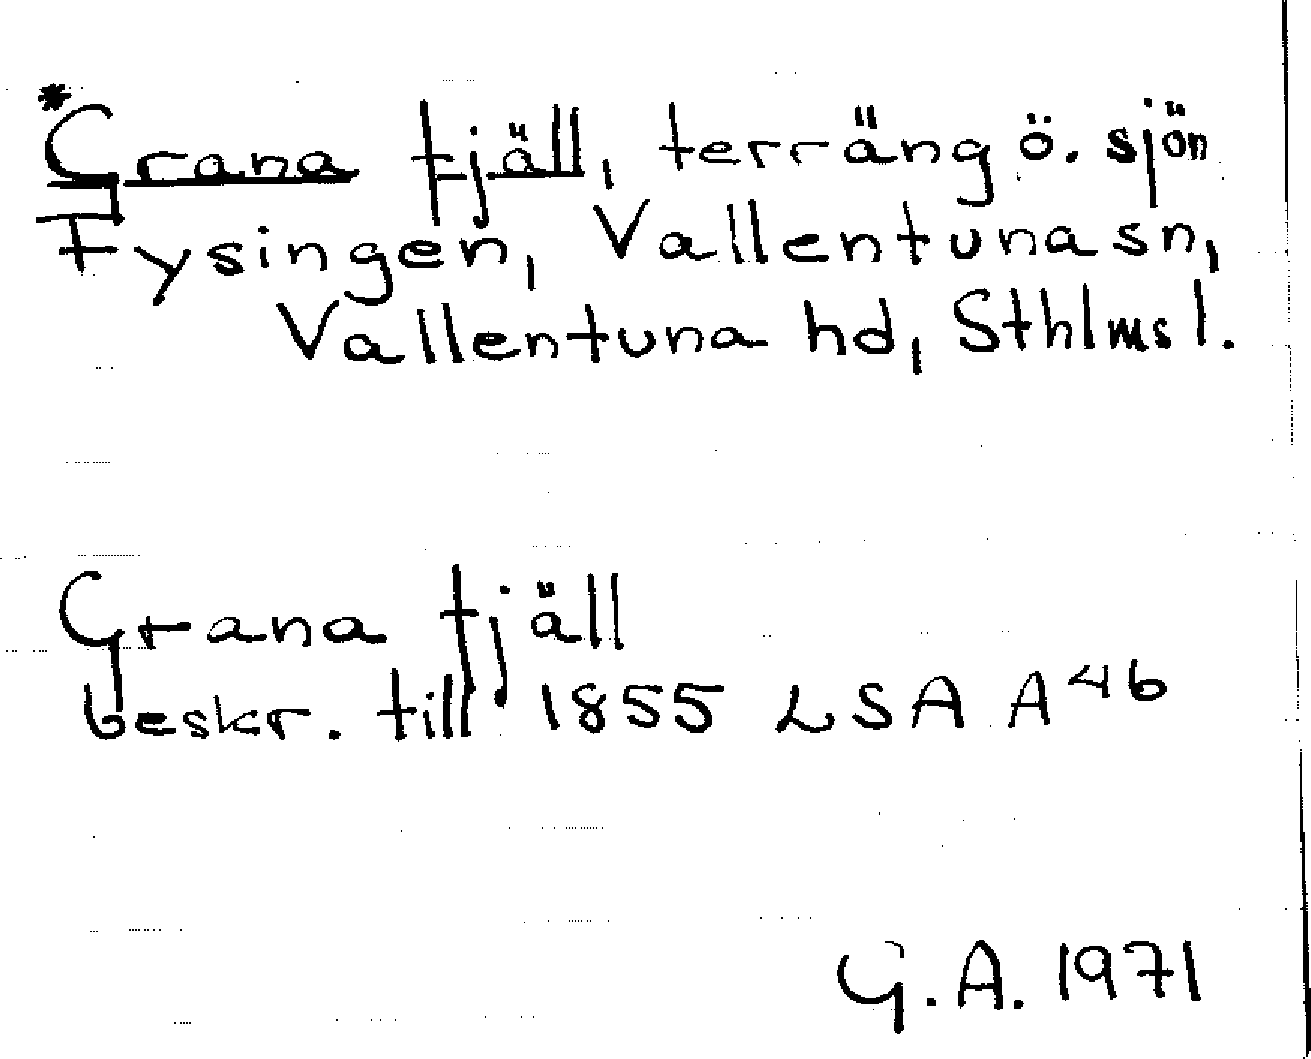 *Grana fjäll, terräng ö. sjön
Fysingen, Vallentuna sn,
Vallentuna hd, Sthlms l.
Grana fjäll
beskr. till 1855 LSA A 46
G.A. 1971